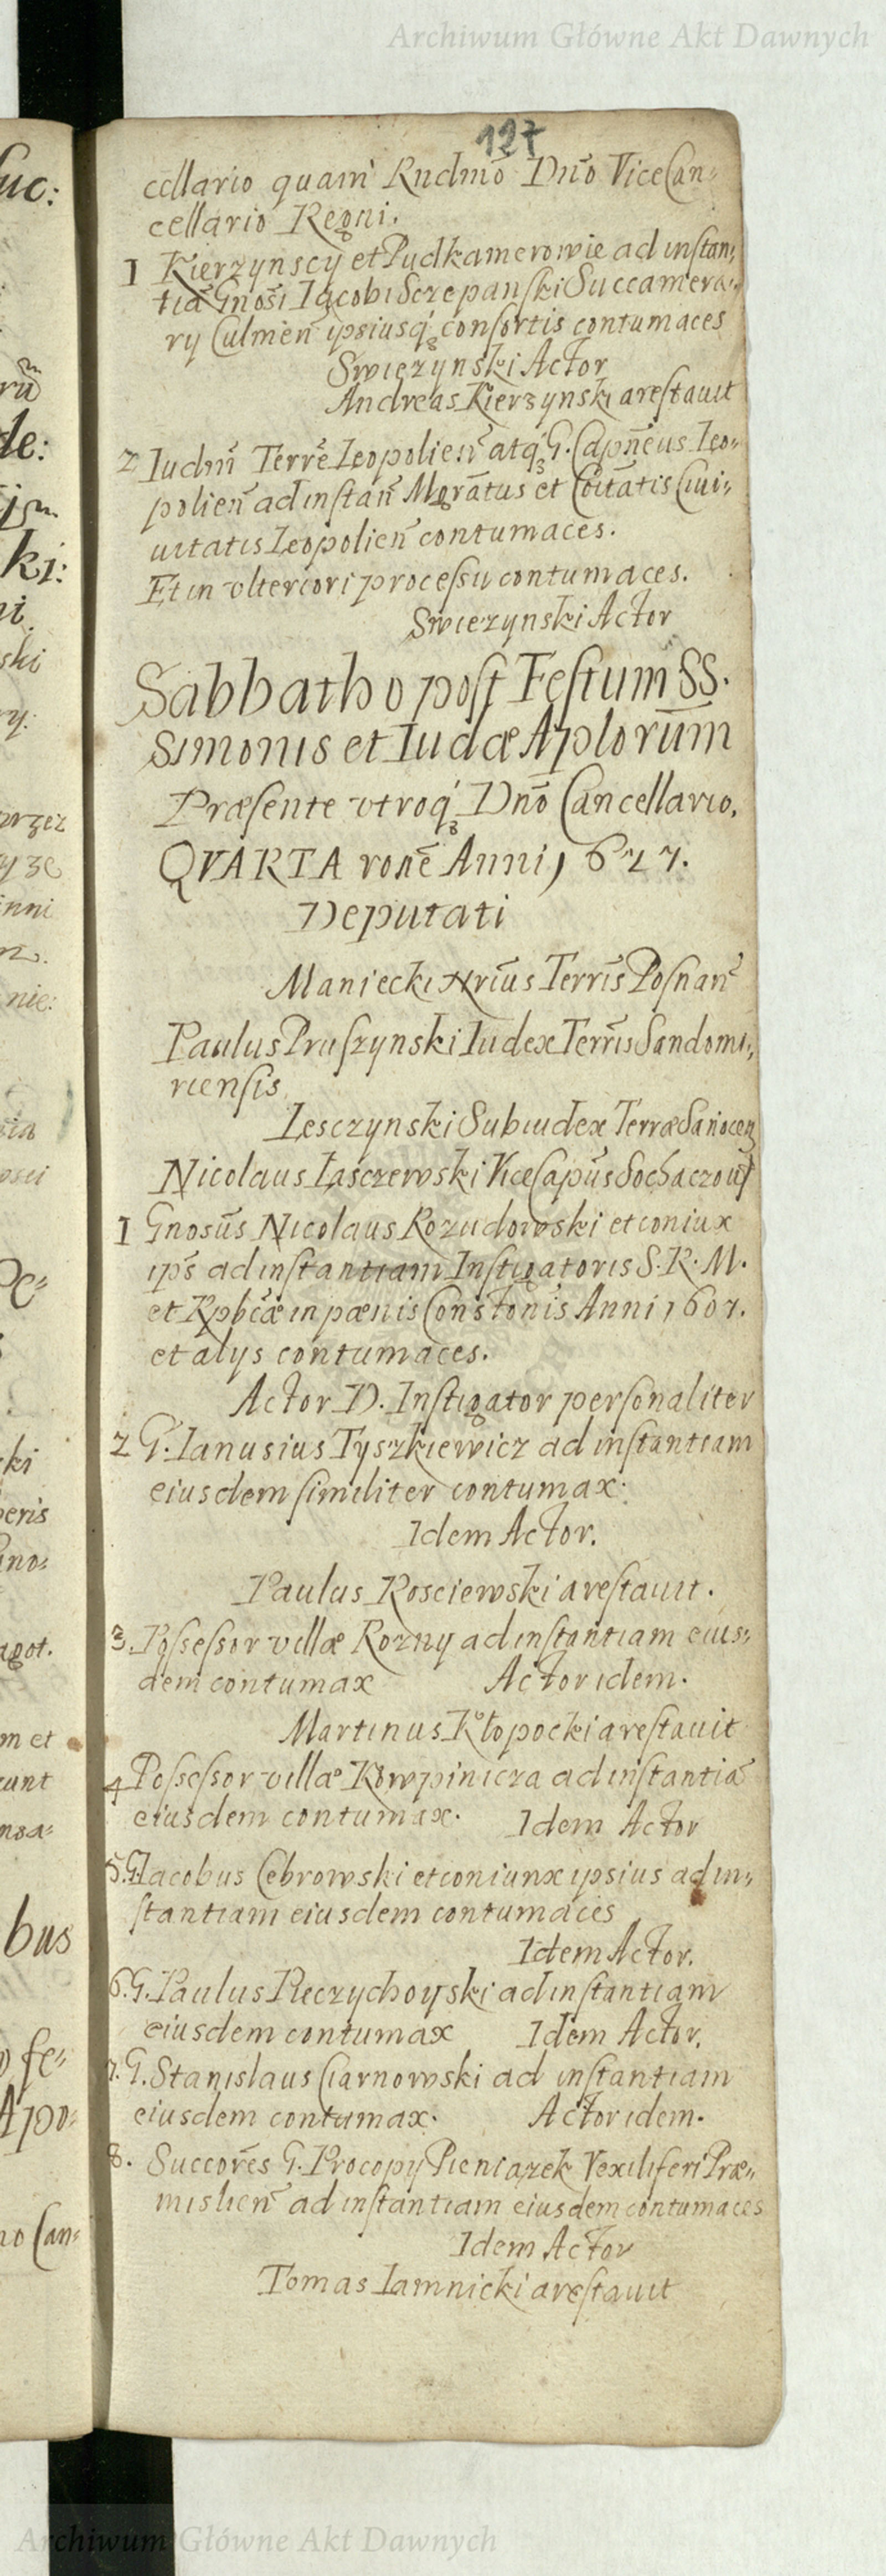 Archiwum Główne Akt Dawnych
127
cellario quam Rndmo Dno ViceCan-
cellario Regni.
1 Kierzynscy et Pudkamerowie ad instan-
tia Gnosi Iacobi Sczepanski Succamera-
ry Culmen ipsiusq consortis contumaces
Swiezynski Actor
Andreas Kierzynski arestauit
2 Iudm Terre Leopolien atq G. Capneus Leo-
polien ad instan Mgratus et Coitatis Ciui-
uitatis Leopolien contumaces.
Et in vlteriori processu contumaces.
Swiezynski Actor
Sabbatho post Festum SS.
Simonis et Iudæ Aplorum
Præsente vtroq Dno Cancellario.
QVARTA rone Anni 1627.
Deputati
Maniecki Nrius Terris Posnan
Paulus Pruszynski Iudex Terris Sandomi-
riensis
Lesczynski Subiudex Terræ Sanocen
Nicolaus Łasczewski ViceCapus Sochaczoui
1 Gnosus Nicolaus Rozudowski et coniux
ips ad instantiam Instigatoris S. R. M.
et Rpbcæ in pænis Constonis Anni 1607.
et alys contumaces.
Actor D. Instigator personaliter
2 G. Ianusius Tyszkiewicz ad instantiam
eiusdem similiter contumax.
Idem Actor.
Paulus Rosciewski arestauit.
3. Possessor villæ Rozny ad instantiam eius-
dem contumax Actor idem.
Martinus Kłopocki arestauit
4 Possessor villæ Kowpinicza ad instantia
eiusdem contumax. Idem Actor
5. G. Iacobus Cebrowski et coniunx ipsius ad in-
stantiam eiusdem contumaces
Idem Actor.
6. G. Paulus Reczychoyski ad instantiam
eiusdem contumax Idem Actor.
7. G. Stanislaus Ciarnowski ad instantiam
eiusdem contumax. Actor idem.
8. Succores G. Procopy Pieniazek Vexiliferi Præ-
mislien ad instantiam eiusdem contumaces
Idem Actor
Tomas Iamnicki arestauit
Archiwum Główne Akt Dawnych